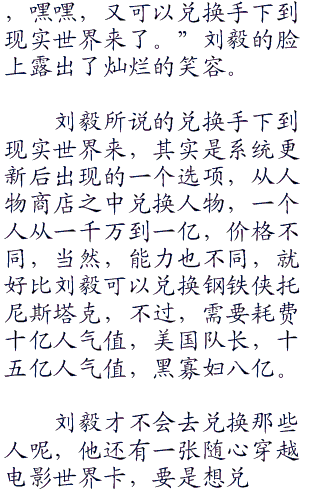 ，嘿嘿，又可以兑换手下到
现实世界来了。”刘毅的脸
上露出了灿烂的笑容。
刘毅所说的兑换手下到
现实世界来，其实是系统更
新后出现的一个选项，从人
物商店之中兑换人物，一个
人从一千万到一亿，价格不
同，当然，能力也不同，就
好比刘毅可以兑换钢铁侠托
尼斯塔克，不过，需要耗费
十亿人气值，美国队长，十
五亿人气值，黑寡妇八亿。
刘毅才不会去兑换那些
人呢，他还有一张随心穿越
电影世界卡，要是想兑